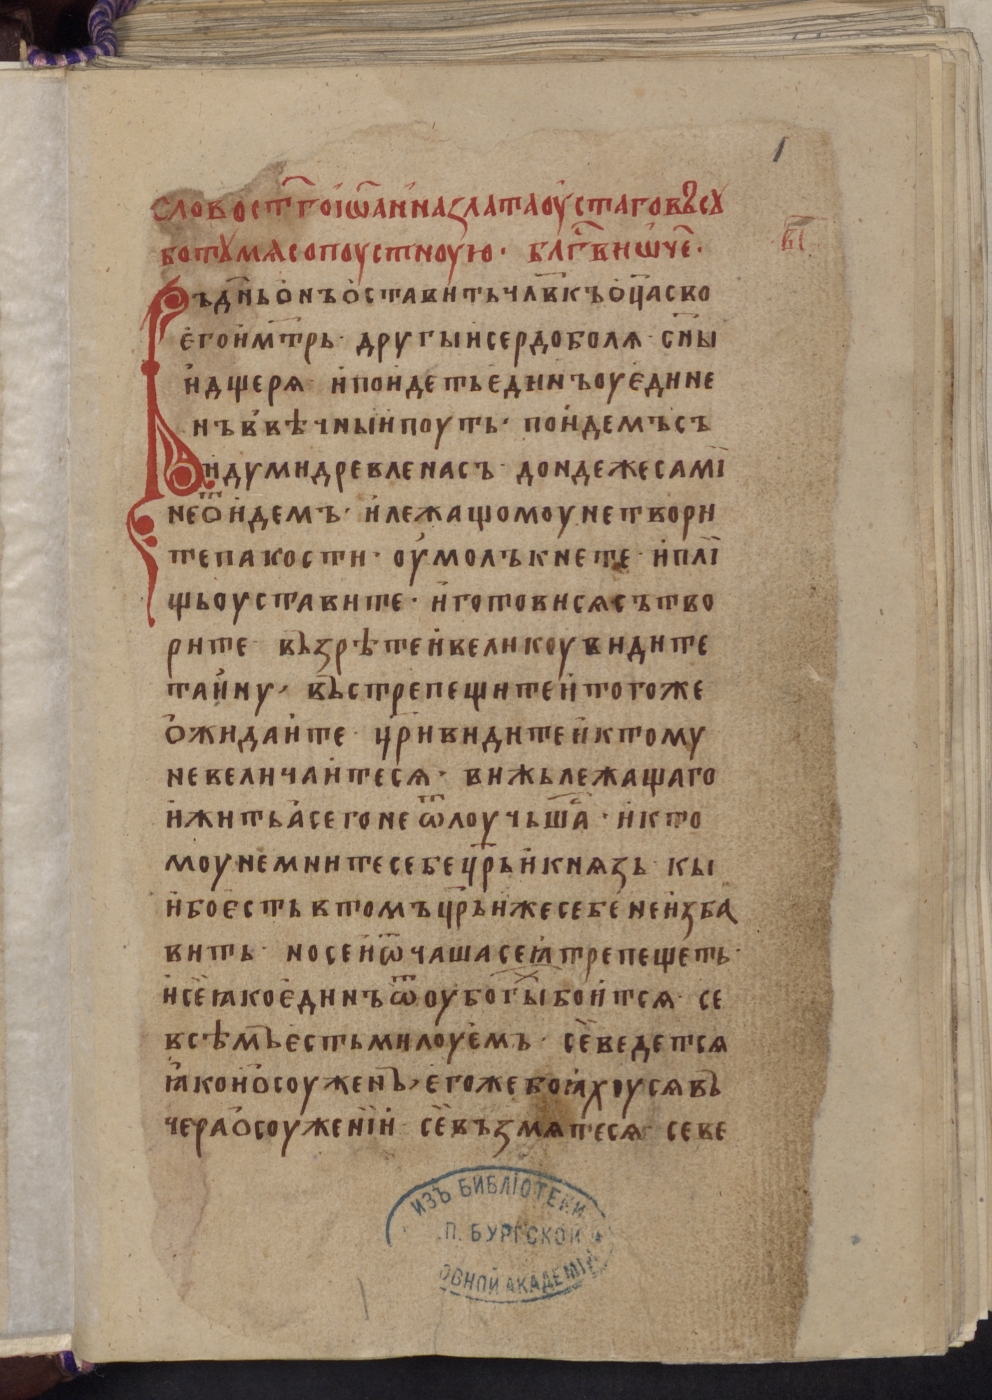 1
слово ст҃го іѡ҃анна златаоуста го въ сꙋ
ботꙋ мѧсопоустноую · бл҃гви ѡч҃е ·
в҃і
Ръ дн҃ь ѻнъ ѻставить чл҃вкъ ѻц҃а сво
єго и мт҃рь · другы и сердоболѧ · сн҃ы
и дщерѧ · и поидеть єдинъ оуєдине
нъ в вѣчныи поуть · поидемъ съ
индуми древле насъ · дондеже самі
не ѿидемъ · и лежащомоу не твори
те пакости · оумолъкнете · и плі
щь оуставите · и готови сѧ сътво
рите · възрѣте и великоу видите
таину · въстрепещите и тогоже
ѻжидаите · цр҃и видите и к тому
не величаитесѧ · вижь лежащаго
и житьа сего не ѿлоучьша҃ · и к то
моу не мните себе цр҃ь и кнѧзь · кы
и бо єсть в томъ цр҃ь иже себе не изба
вить · но се и ѿ чаша сеꙗ трепещеть ·
и се ꙗко єдинъ ѿ оубогы҃ боитсѧ · се
всѣмъ єсть милоуємъ · се ведетсѧ
ꙗкон ѻсоуженъ, єгоже боꙗхоусѧ въ
чера ѻсоуженіи · се възмѧтесѧ · се ве
ИЗЪ БИБЛІОТЕКИ
П. БУРГСКОЙ
ОВНОЙ АКАДЕМІИ